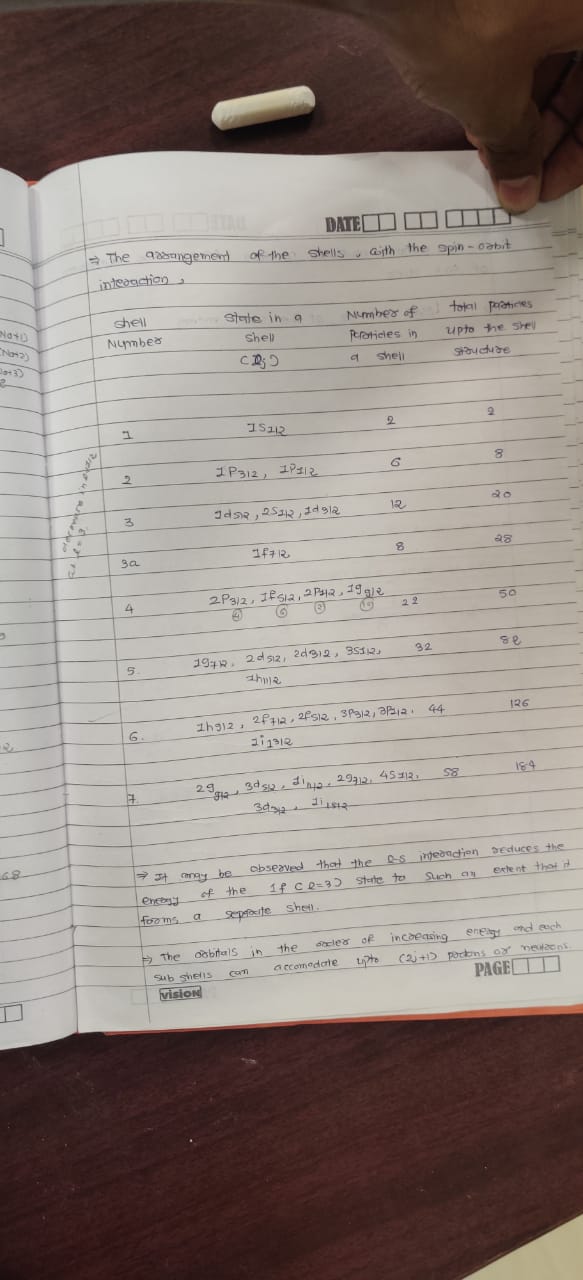 DATE
⇒ The arrangement of the shells, with the spin-orbit
interaction,
shell Number
State in a shell (lj)
Number of Particles in a shell
total particles upto the shell structure
1 1S1/2 2 2
2 1P3/2, 1P1/2 6 8
3 1d5/2, 2S1/2, 1d3/2 12 20
3a 1f7/2 8 28
4 2P3/2, 1f5/2, 2P1/2, 1g9/2 22 50
④ ⑥ ② ⑩
5. 1g7/2, 2d5/2, 2d3/2, 3S1/2, 32 82
1h11/2
6. 1h9/2, 2f7/2, 2f5/2, 3P3/2, 3P1/2, 44 126
1i13/2
7. 2g9/2, 3d5/2, 1i11/2, 2g7/2, 4S1/2, 58 184
3d3/2, 1j15/2
⇒ It may be observed that the l-s interaction reduces the
energy of the 1f (l=3) state to such an extent that it
forms a separate shell.
⇒ The orbitals in the order of increasing energy and each
sub shells can accomodate upto (2j+1) protons or neutrons.
vision
PAGE